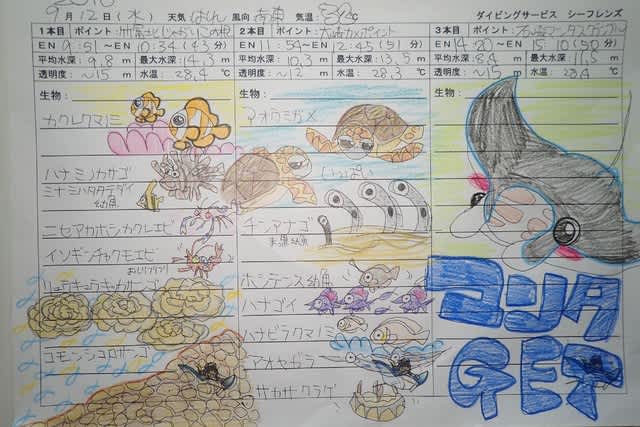 9月12日(水) 天気 はれ 風向 南東 気温:32℃ ダイビングサービス シーフレンズ
1本目 ポイント:
EN 9:51〜EN 10:34 (43分)
平均水深:9.8m 最大水深:14.3m
透明度:〜15m 水温:28.4℃
生物:
カクレクマノミ
ハナミノカサゴ
ミナミハタタテダイ
幼魚
ニセアカホシカクレエビ
イソギンチャクモエビ
おしりフリフリ
リュウキュウキッカサンゴ
コモンシコロサンゴ
2本目 ポイント:
EN 11:54〜EN 12:45 (51分)
平均水深:10.3m 最大水深:13.5m
透明度:〜12m 水温:28.3℃
生物:
アオウミガメ
いっぱい
チンアナゴ
ホシテンス幼魚
ハナゴイ
ハナビラクマノミ
アオヤガラ
サカサクラゲ
3本目 ポイント:
EN 14:20〜EN 15:10 (50分)
平均水深:8.4m 最大水深:11.5m
透明度:〜15m 水温:28.4℃
生物:
マンタ
GET